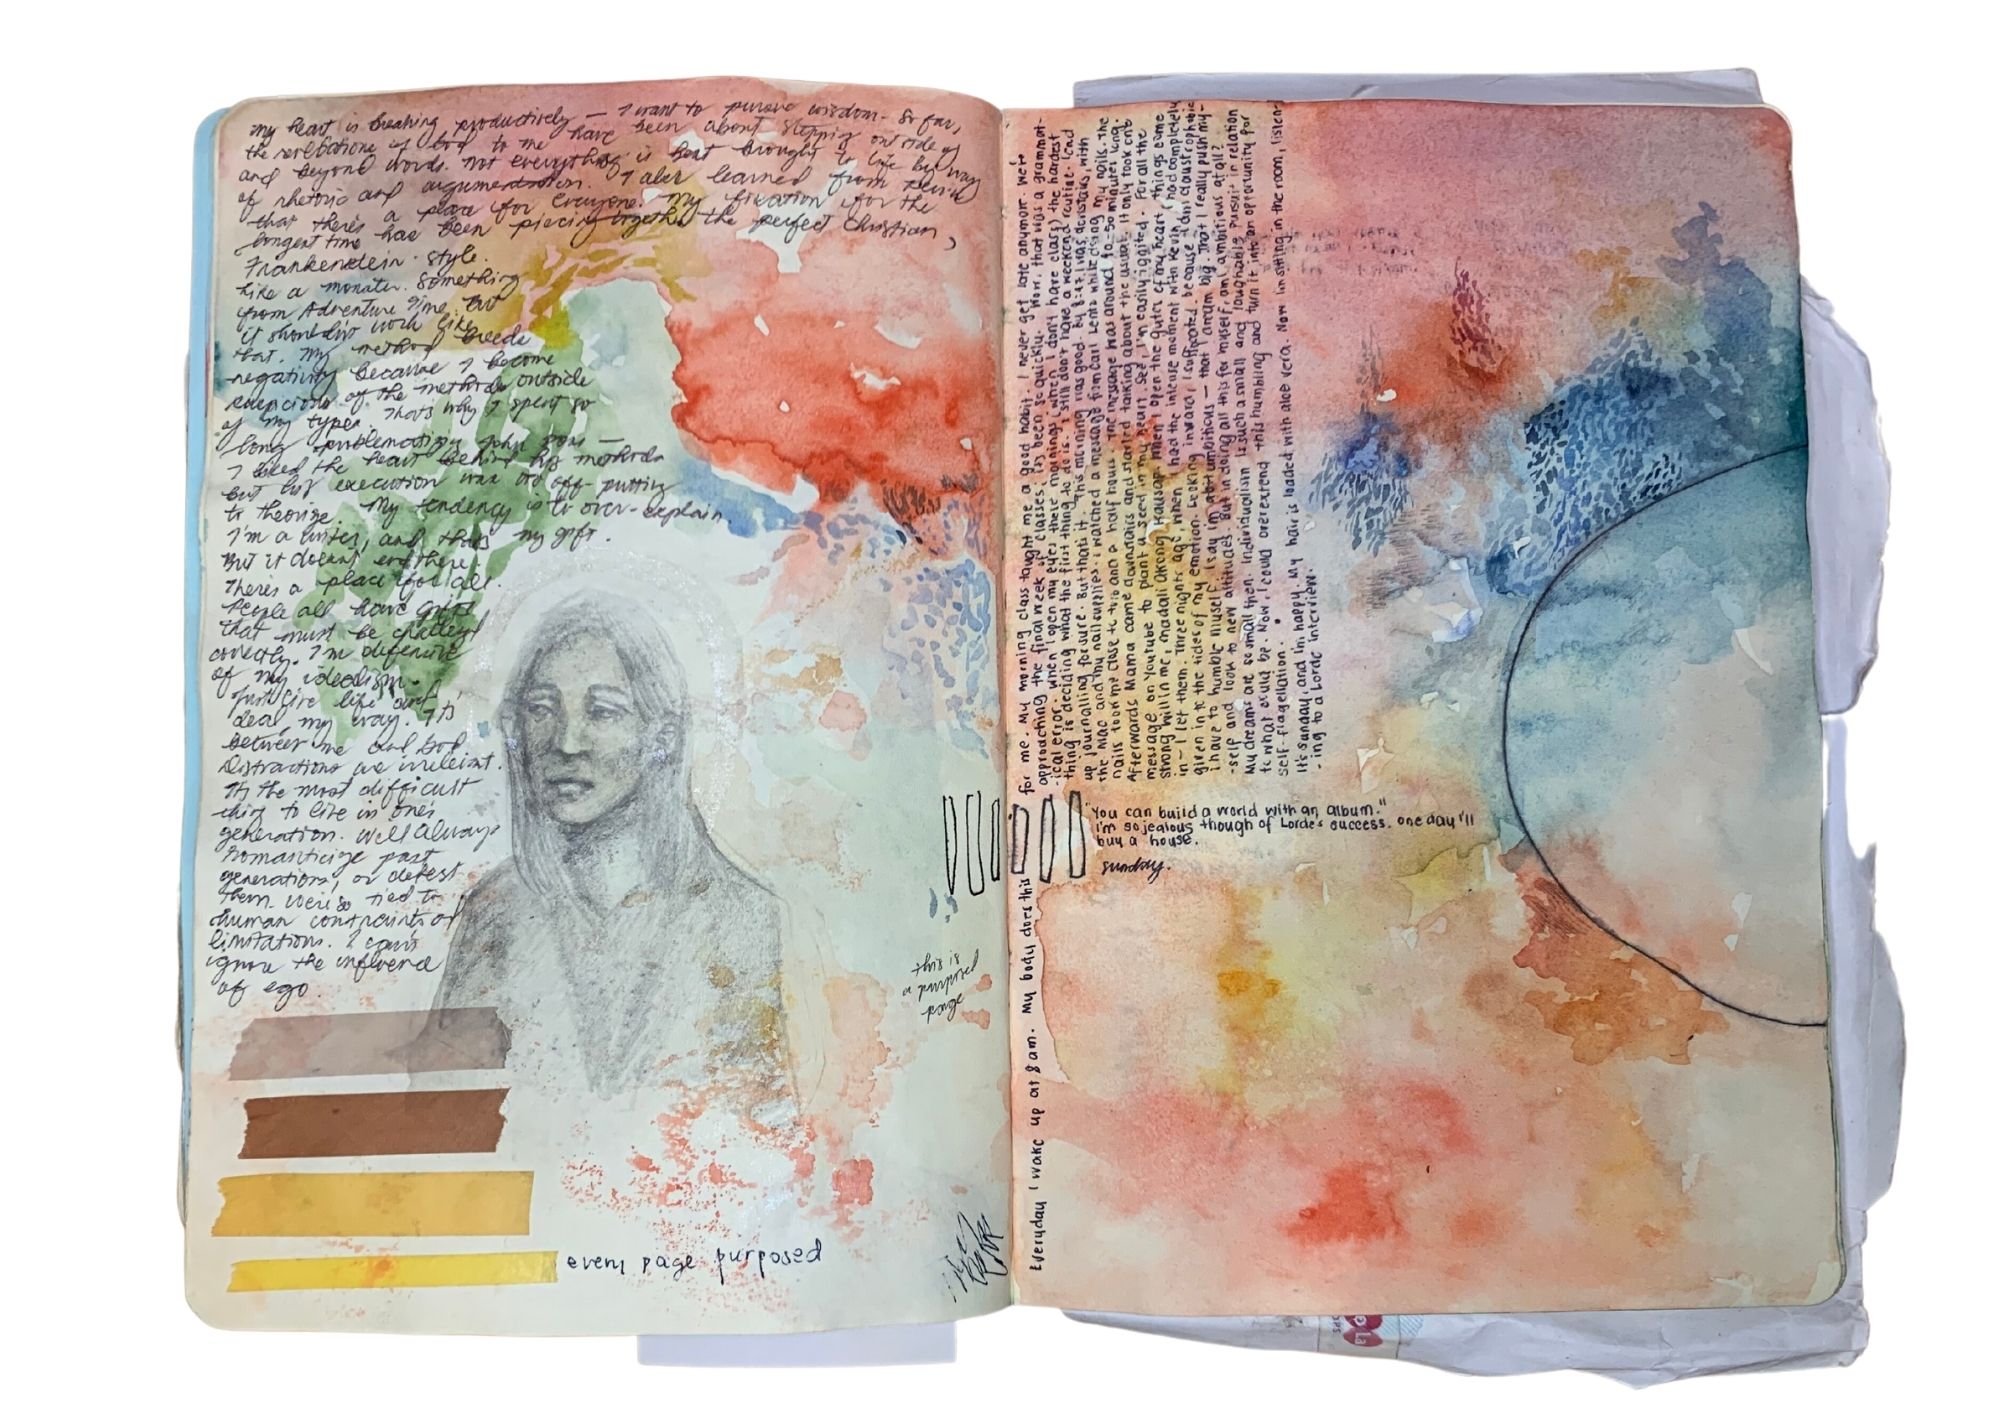 my heart is breaking productively — I want to pursue wisdom. So far,
the revelations of God to me have been about stepping outside of
and beyond words. Not everything is best brought to life by way
of rhetoric and argumentation. I also learned from
that there's a place for everyone. My fixation for the
longest time has been piecing together the perfect Christian,
Frankenstein-style.
like a monster. Something
from Adventure Time. But
it shouldn't work like
that. My method breeds
negativity because I become
suspicious of the methods outside
of my type. That's why I spent so
long problematizing John —
I liked the heart behind his methods
but his execution was too off-putting
to theorize. My tendency is to over-explain
I'm a writer, and that's my gift.
But it doesn't end there.
There's a place for all.
People all have gifts
that must be
correctly. I'm defensive
of my idealism.
Just live life and
deal my way. It's
between me and God.
Distractions are irrelevant.
It's the most difficult
thing to live in one's
generation. We'll always
romanticize past
generations, or detest
them. We're so tied to
human constraints or
limitations. I can't
ignore the influence
of ego.
every page purposed
this is
a purposed
page
Everyday I wake up at 8 am. My body does this
for me. My morning class taught me a good habit. I never get late anymore. We're
approaching the final week of classes. It's been so quickly. Worn. that was a grammat-
-ical error. When I open my eyes these mornings (when I don't have class) the hardest
thing is deciding what the first thing to do is. I still don't have a weekend routine. I end
up journalling for sure. But that's it. This morning was good. By 8:47 I was downstairs, with
the Mac and my nail supplies. I watched a message from Carl Lentz while doing my nails. The
nails took me close to two and a half hours. The message was around 40-50 minutes long.
Afterwards Mama came downstairs and started talking about the usual. It only took one
message on YouTube to plant a seed in my heart. See, I'm easily ignited. For all the
strong will in me, madali akong kausap. When I open the gates of my heart things come
in — I let them. Three nights ago when I had the intense moment with Kevin, I had completely
given in to the tides of my emotion. Looking inward, I suffocated because I'm claustrophobic
I have to humble myself. I say I'm ambitious — that I dream big. That I really push my-
-self and look to new altitudes. But in doing all this for myself, am I ambitious at all?
My dreams are so small then. Individualism is such a small and laughable pursuit in relation
to what could be. Now, I could overextend this humbling and turn it into an opportunity for
self-flagellation.
It's Sunday, and I'm happy. My hair is loaded with aloe vera. Now I'm sitting in the room, listen-
-ing to a Lorde interview.
"You can build a world with an album."
I'm so jealous though of Lorde's success. One day I'll
buy a house.
Sunday.